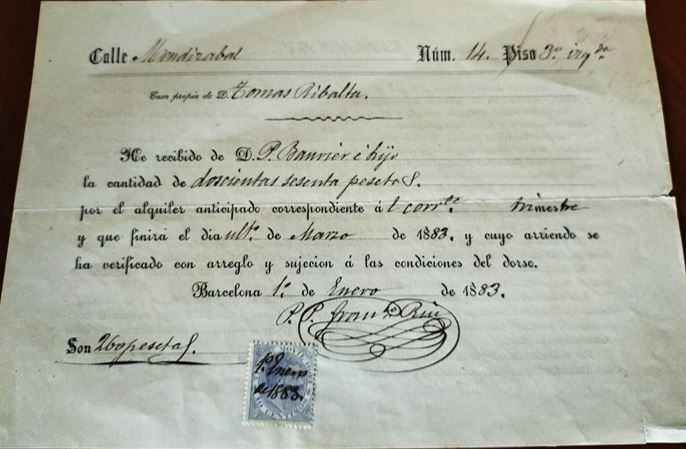 Calle Mendizabal Núm. 14. Piso 3º izqda.
Casa propia de D. Tomas Ribalta.
He recibido de D. P. Bauvier é hijo
la cantidad de doscientas sesenta pesetas.
por el alquiler anticipado correspondiente á el corrte. trimestre
y que finirá el dia ulto. de Marzo de 1883. y cuyo arriendo se
ha verificado con arreglo y sujecion á las condiciones del dorso.
Barcelona 1º. de Enero de 1883.
P. P. Franco
Son 260 pesetas.
MOVIL
1º. Enero
de 1883.
10 CENTIMOS